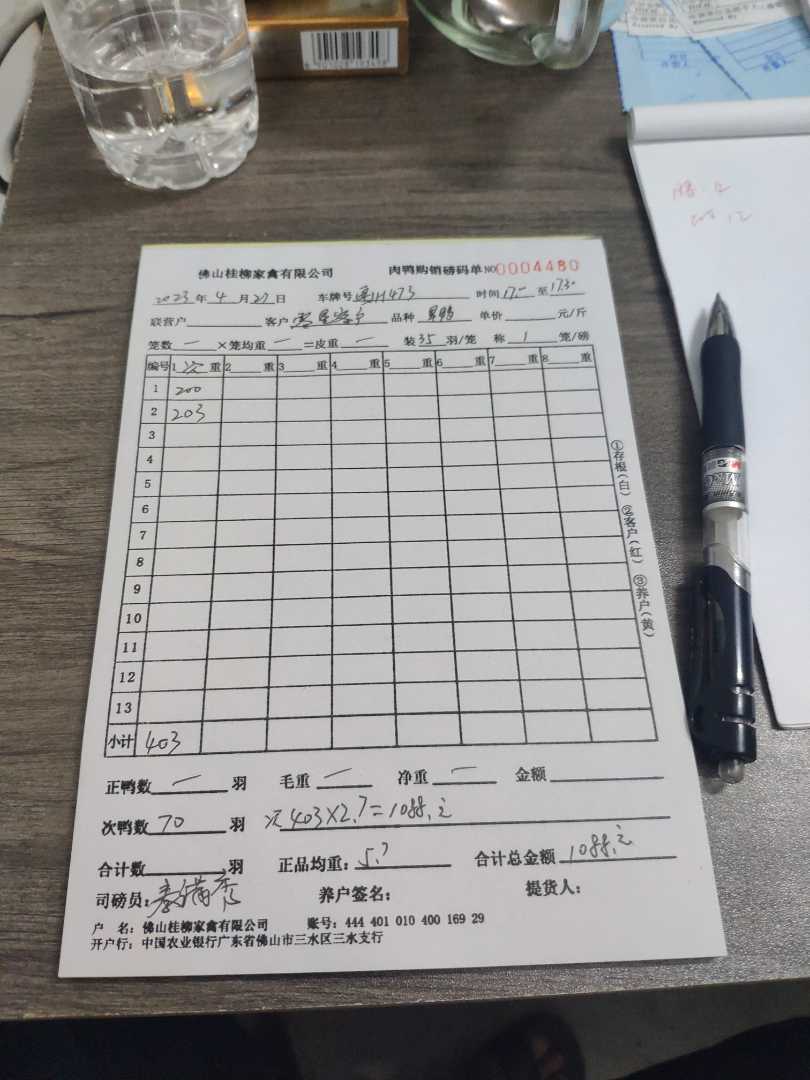 佛山桂柳家禽有限公司 肉鸭购销磅码单 NO 0004480
2023年4月27日 车牌号 H1473 时间 17:00 至 17:30
联营户 客户 品种 单价 元/斤
笼数 一 ×笼均重 一 =皮重 一 装 35 羽/笼 称 1 笼/磅
编号 1 次 重 2 重 3 重 4 重 5 重 6 重 7 重 8 重
1 200
2 203
3
4
5
6
7
8
9
10
11
12
13
小计 403
①存根(白) ②客户(红) ③养户(黄)
正鸭数 一 羽 毛重 一 净重 一 金额
次鸭数 70 羽 次 403×2.7=1088.元
合计数 羽 正品均重: 5.7 合计总金额 1088.元
司磅员: 养户签名: 提货人:
户 名: 佛山桂柳家禽有限公司 账号: 444 401 010 400 169 29
开户行: 中国农业银行广东省佛山市三水区三水支行